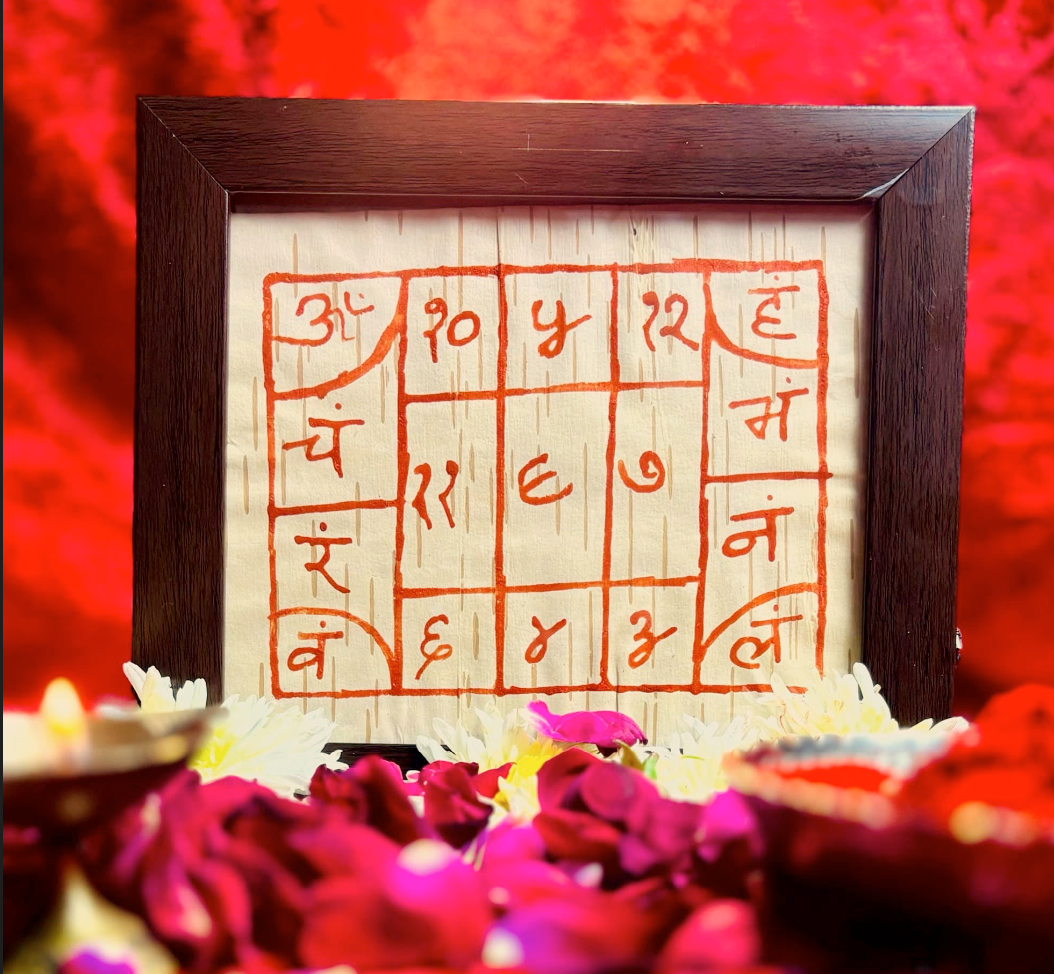 ॐ १० ५ १२ हं
चं मं
११ ९ ७
रं नं
वं ६ ४ ३ लं